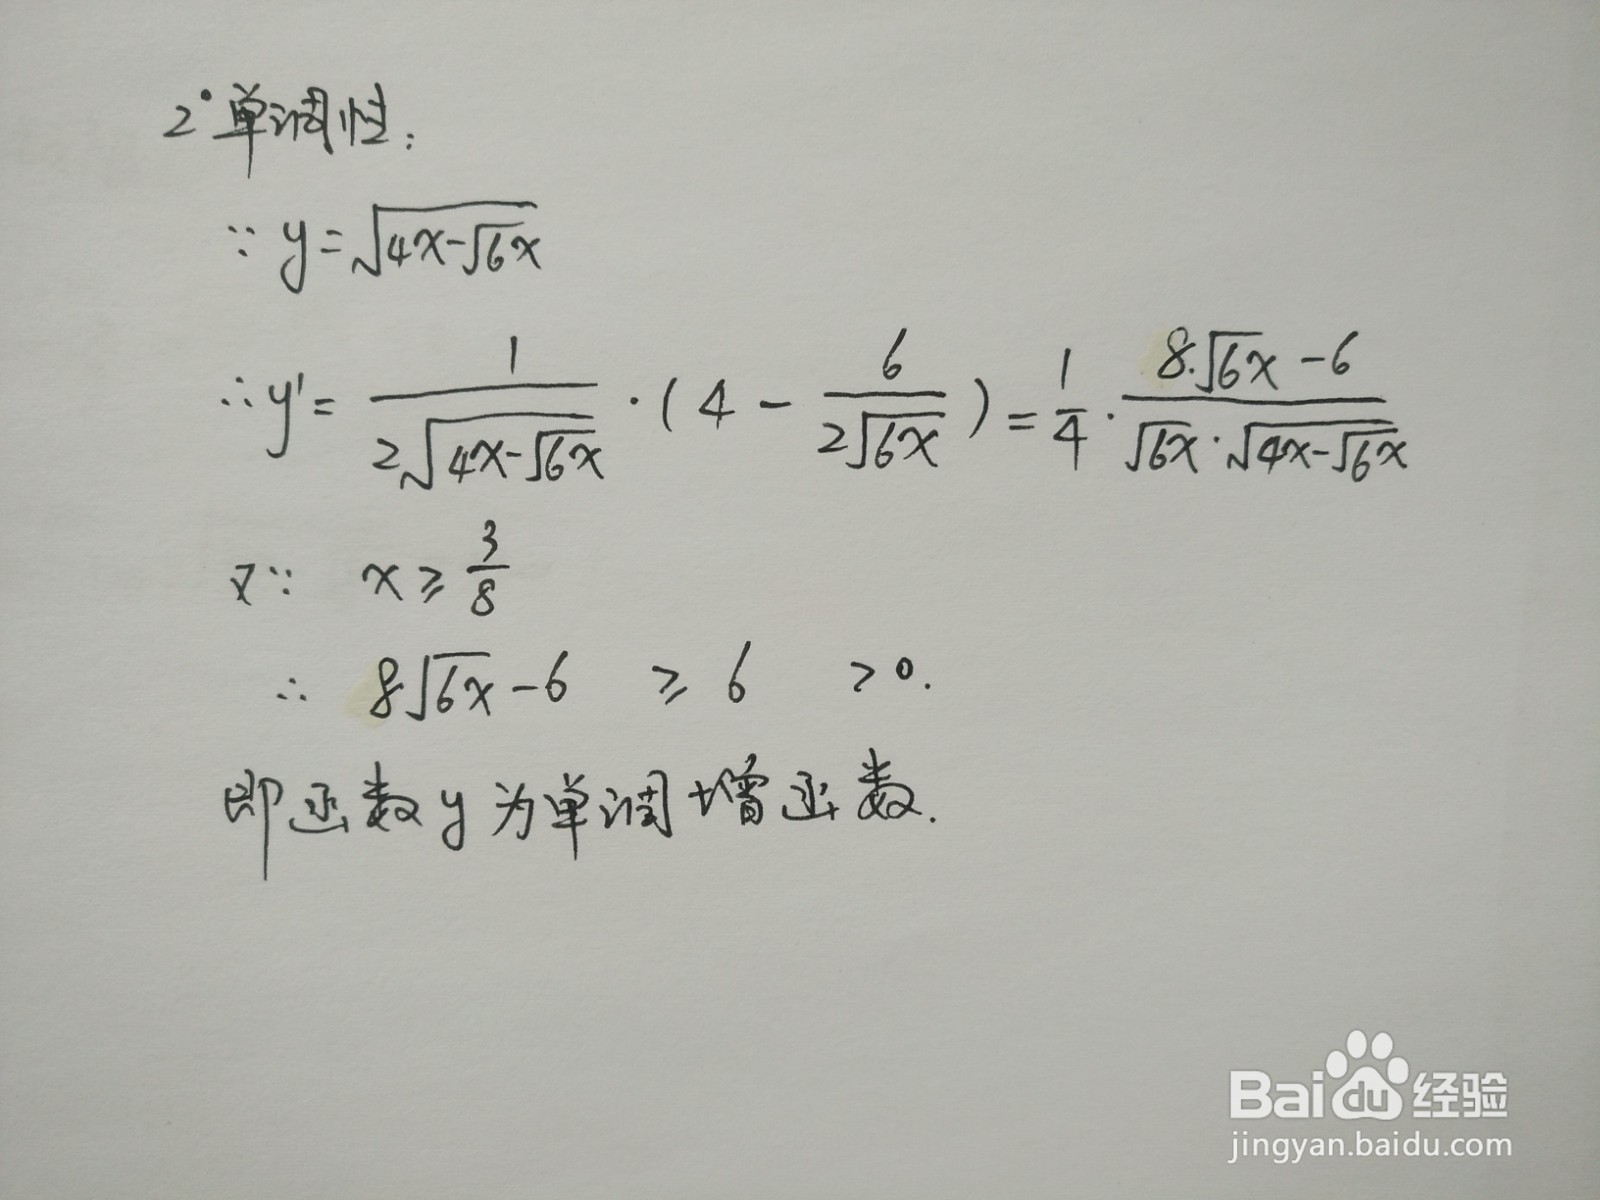 2°单调性:
∵ y=√(4x-√6x)
∴y'= 1/(2√(4x-√6x)) ·(4 - 6/(2√6x)) = 1/4 · (8·√6x -6)/(√6x·√(4x-√6x))
又∵ x≥3/8
∴ 8√6x-6 ≥ 6 >0.
即函数y为单调增函数.
Bai du 经验
jingyan.baidu.com